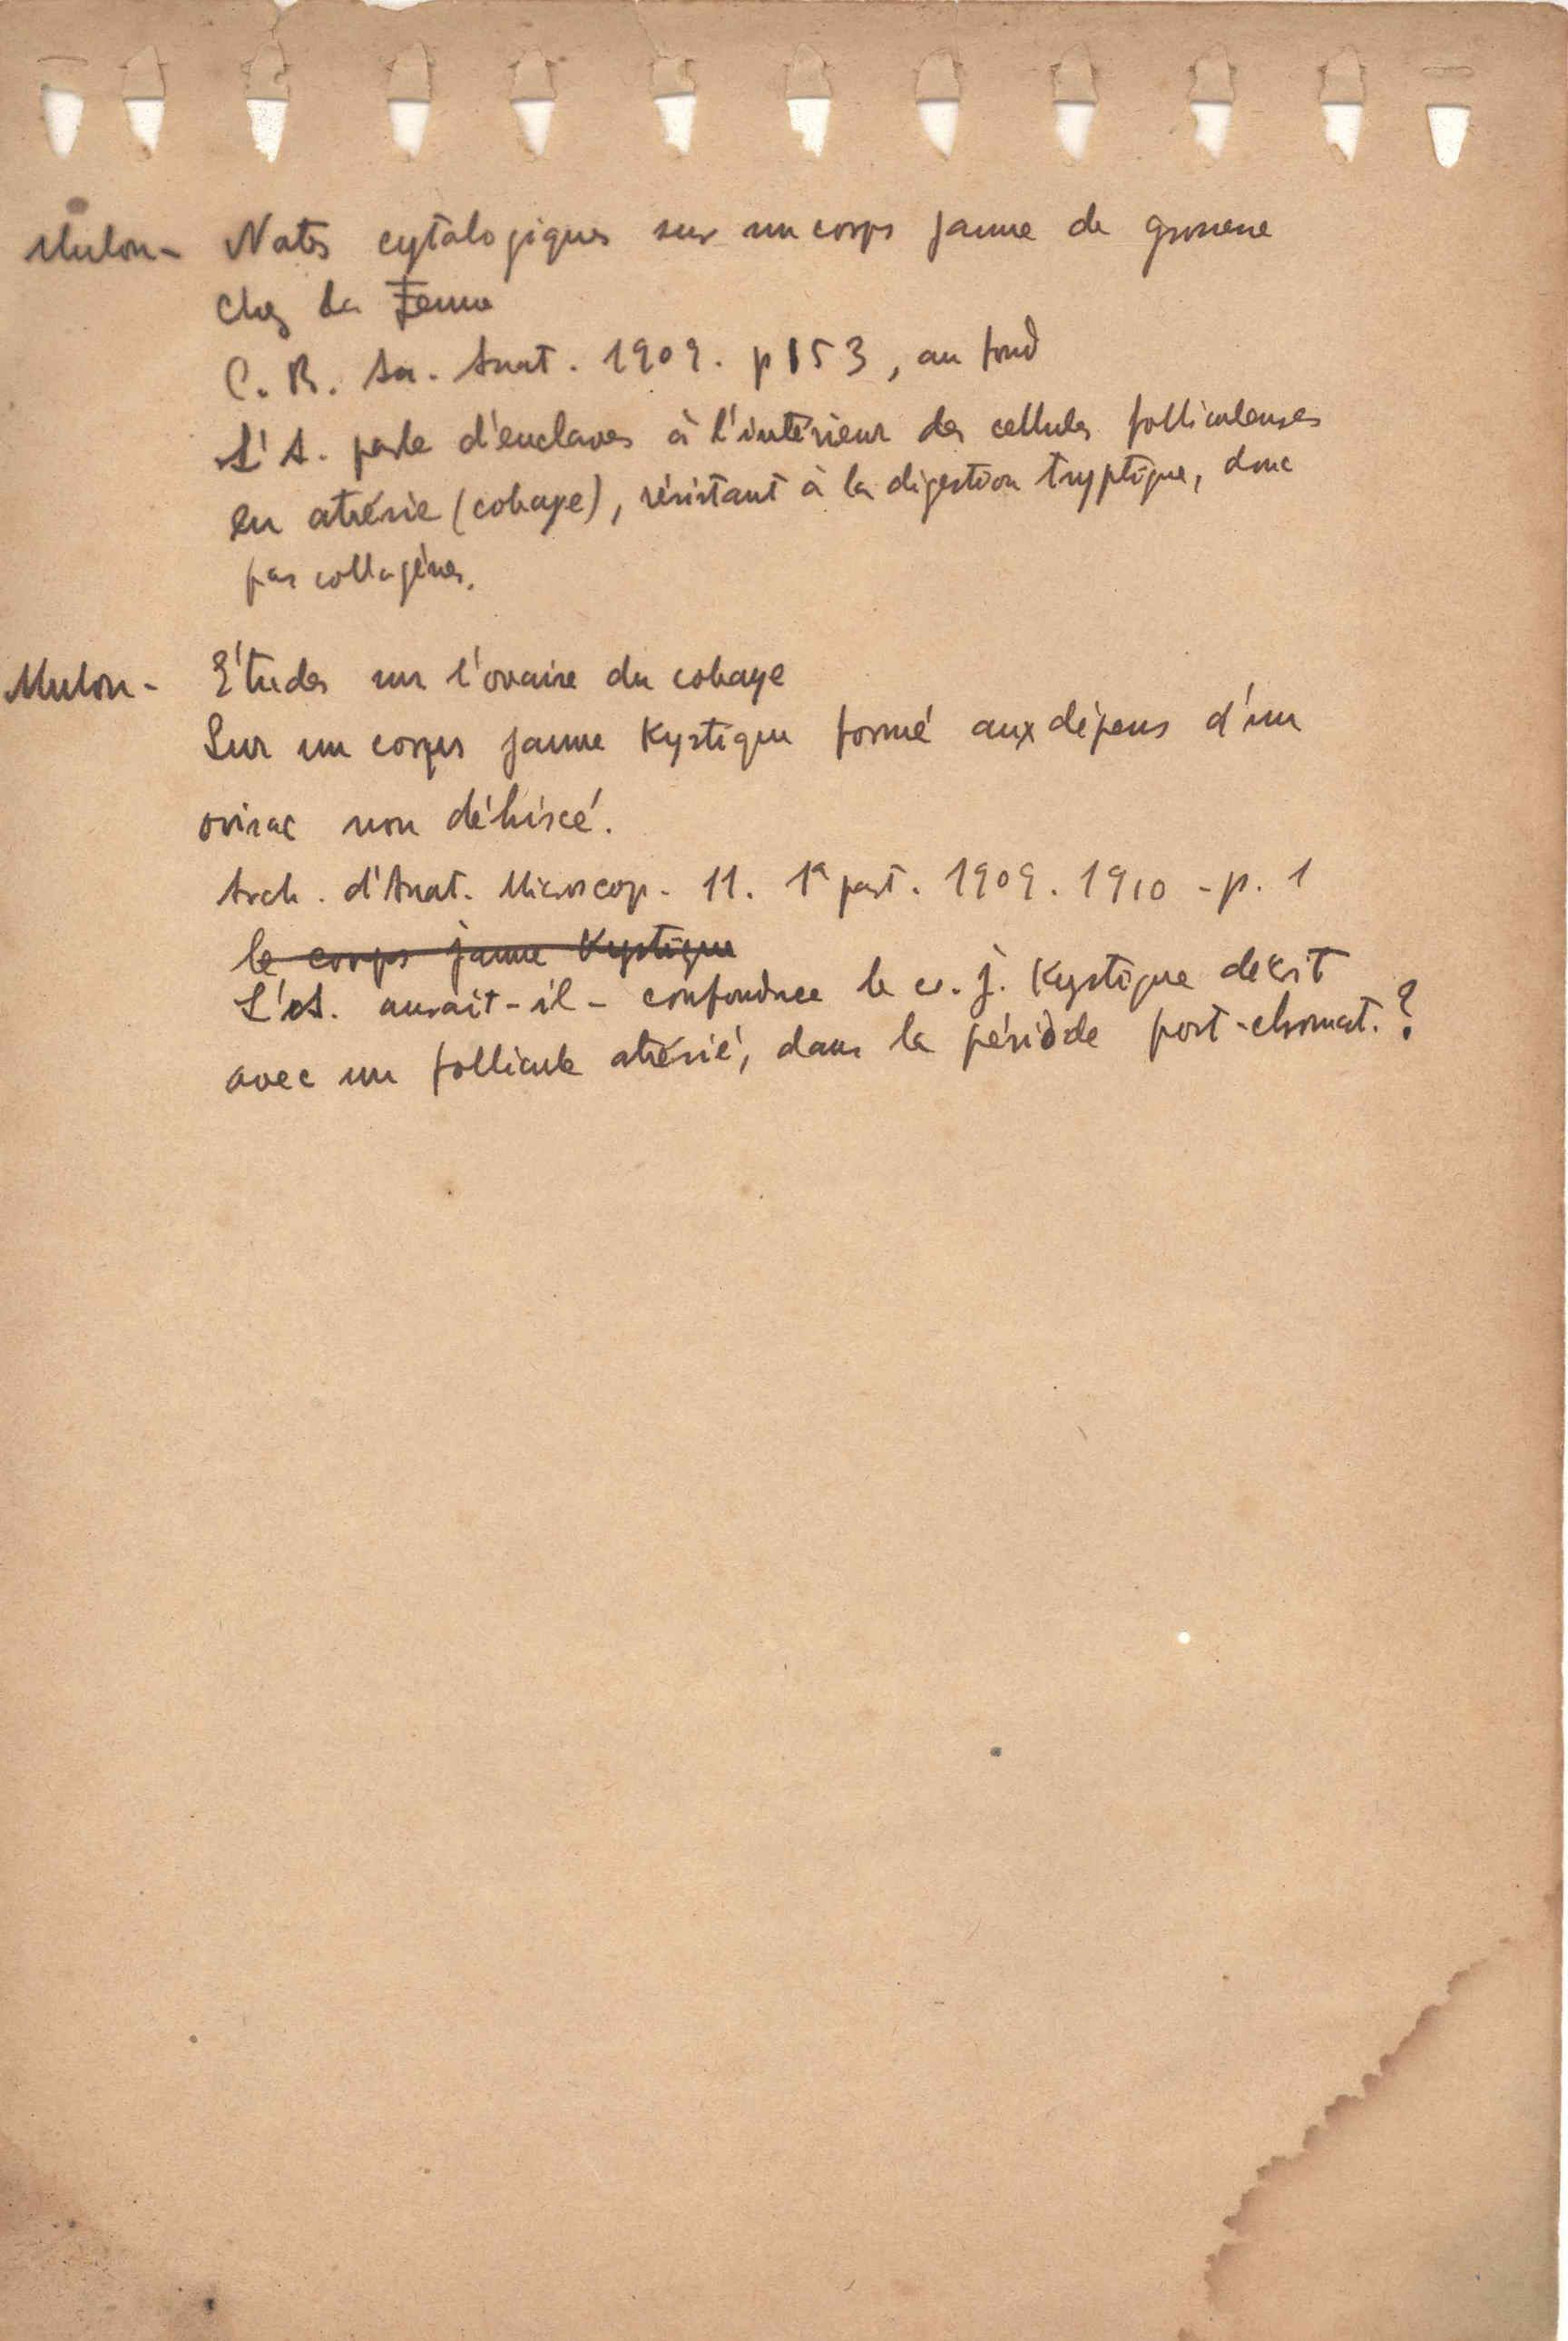 Mulon - Notes cytologiques sur un corps jaune de grossesse
chez la Femme
C. R. Ass. Anat. 1909. p 153, au fond
L'A. parle d'enclaves à l'intérieur des cellules folliculeuses
en atrésie (cobaye), résistant à la digestion tryptique, donc
pas collagènes.
Mulon - Études sur l'ovaire du cobaye
Sur un corps jaune Kystique formé aux dépens d'un
ovisac non déhiscé.
Arch. d'Anat. Microscop. 11. 1a part. 1909. 1910 - p. 1
le corps jaune Kystique
L'A. aurait-il - confondue le c. j. Kystique décrit
avec un follicule atrésié, dans la période post-chromat.?